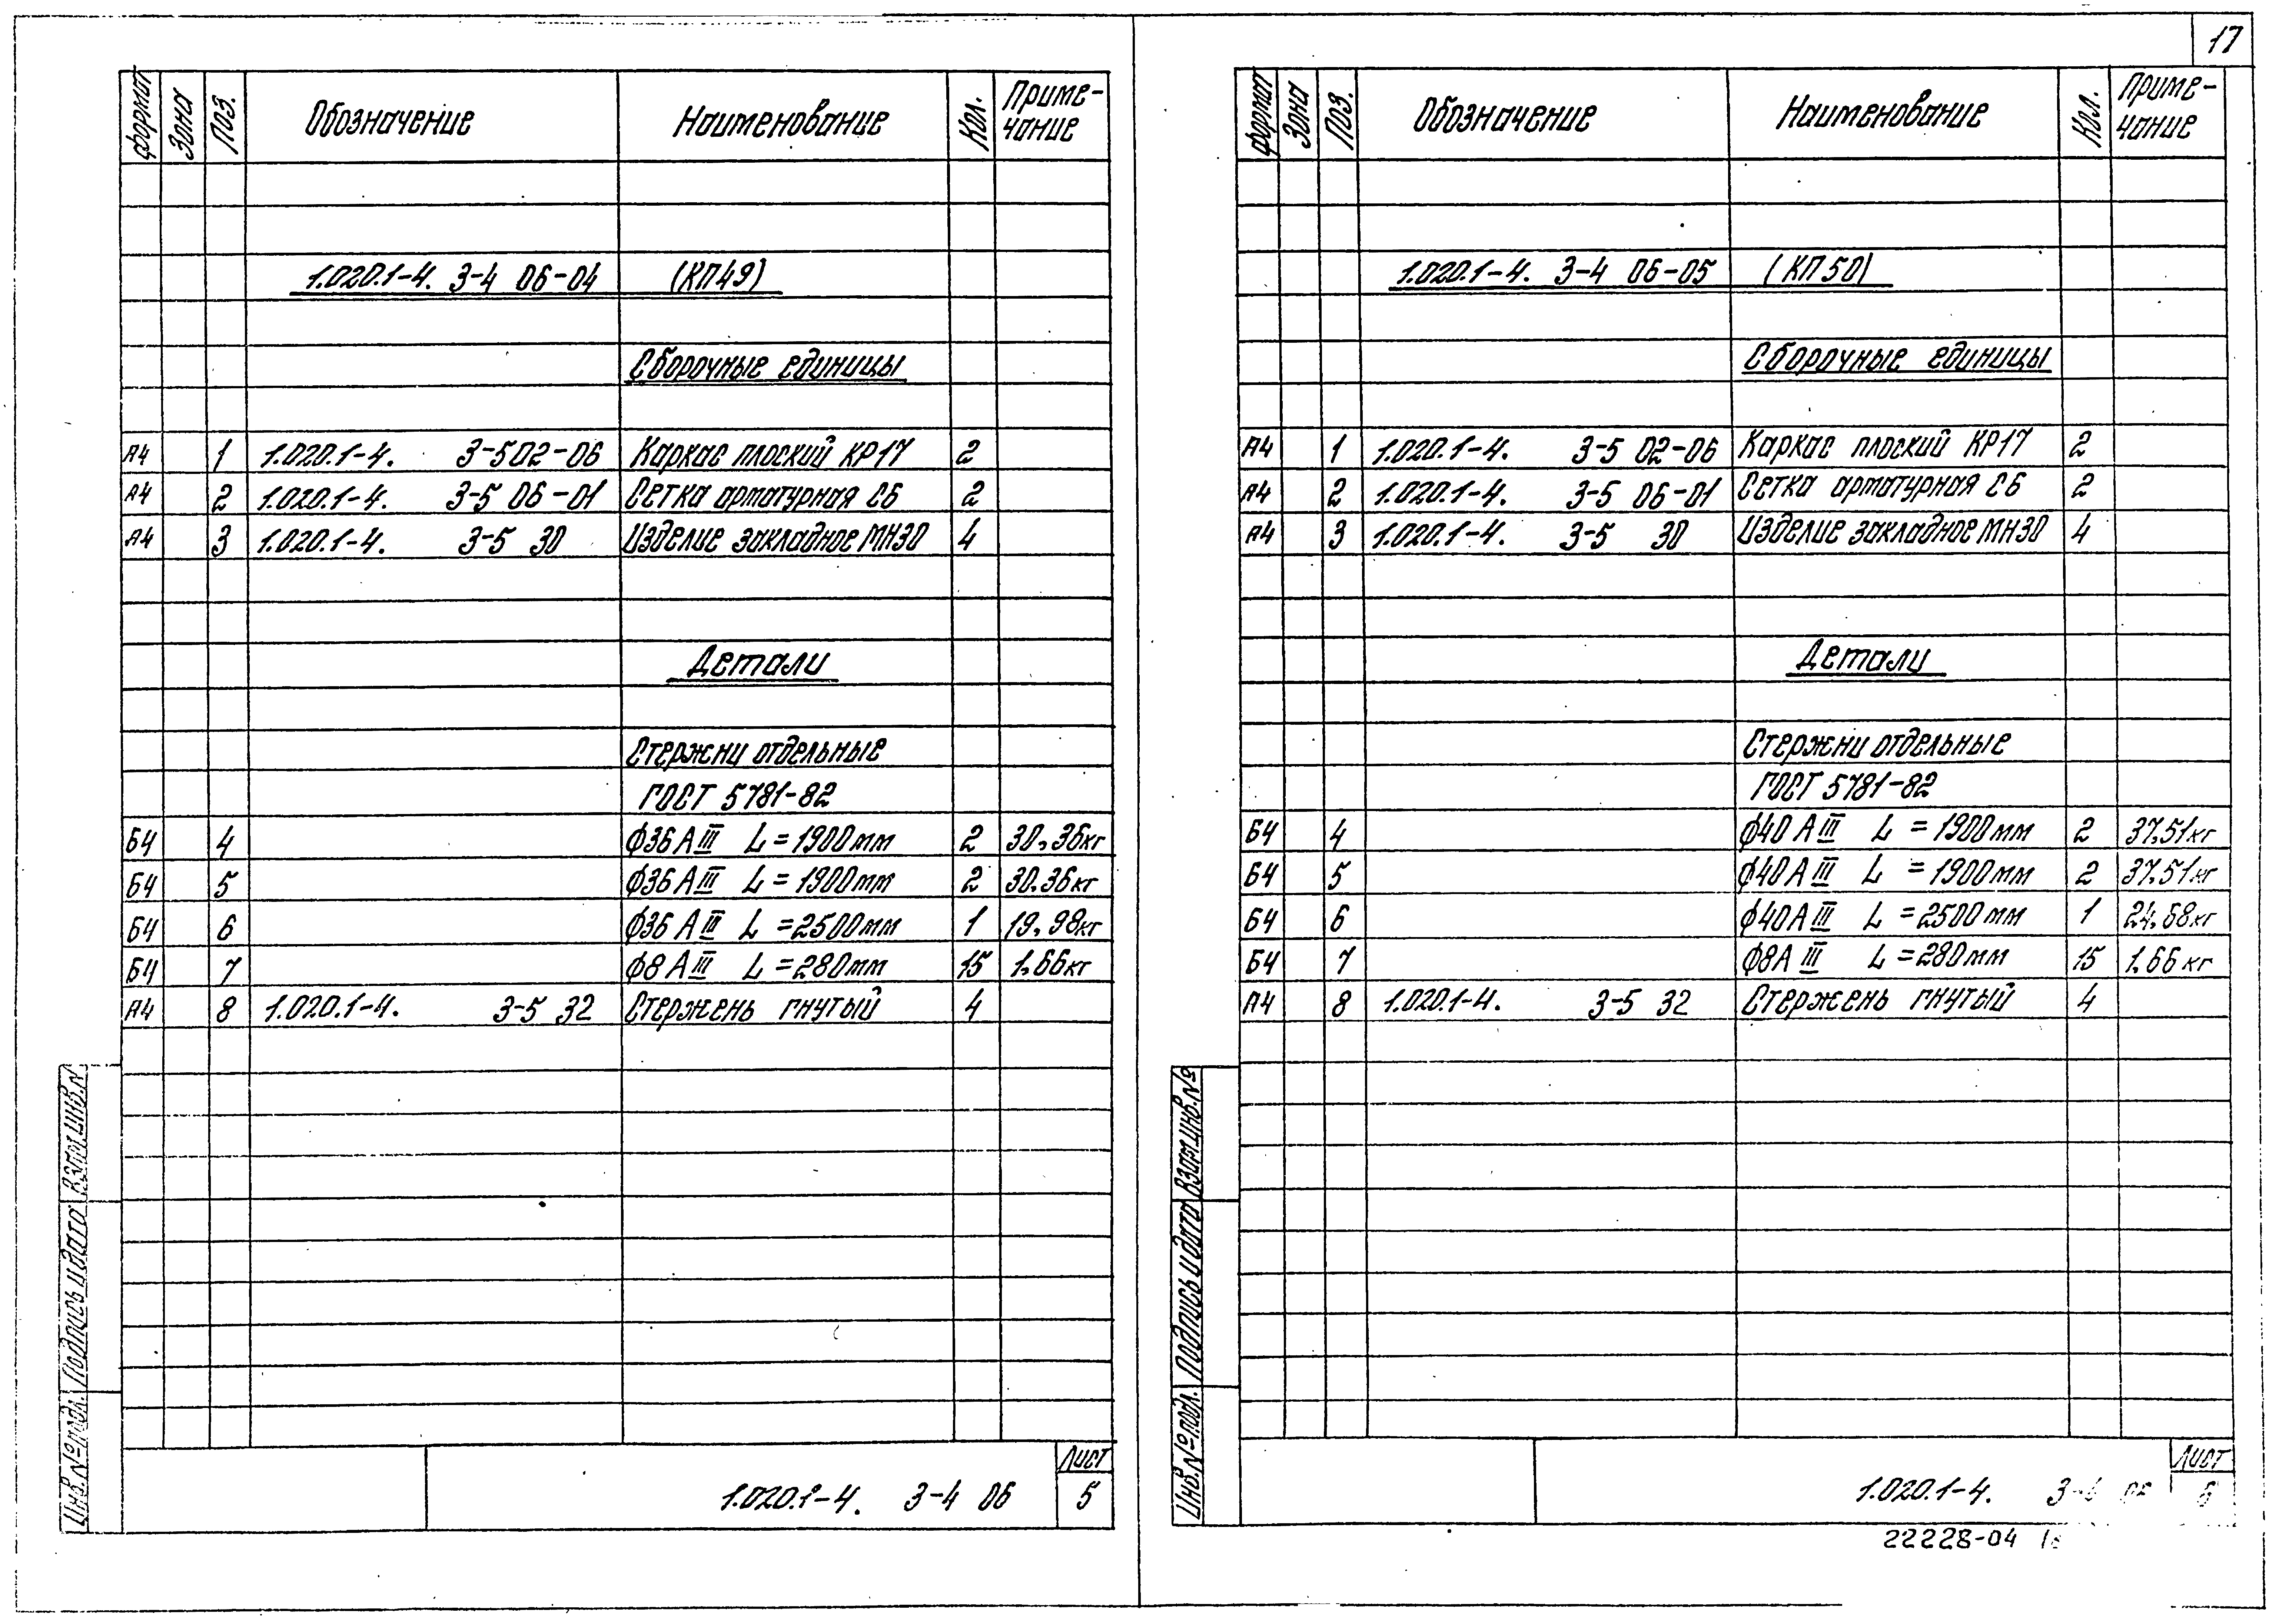 17
Формат Зона Поз. Обозначение Наименование Кол. Приме-
чание
1.020.1-4. 3-4 06-04 (КП49)
Сборочные единицы
А4 1 1.020.1-4. 3-5 02-06 Каркас плоский КР17 2
А4 2 1.020.1-4. 3-5 06-01 Сетка арматурная С6 2
А4 3 1.020.1-4. 3-5 30 Изделие закладное МН30 4
Детали
Стержни отдельные
ГОСТ 5781-82
Б4 4 ф36 АIII L=1900мм 2 30.36кг
Б4 5 ф36 АIII L=1900мм 2 30.36кг
Б4 6 ф36 АIII L=2500мм 1 19.98кг
Б4 7 ф8 АIII L=280мм 15 1.66кг
А4 8 1.020.1-4. 3-5 32 Стержень гнутый 4
Инв.№подл. Подпись и дата Взам.инв.№
1.020.1-4. 3-4 06
Лист
5
Формат Зона Поз. Обозначение Наименование Кол. Приме-
чание
1.020.1-4. 3-4 06-05 (КП50)
Сборочные единицы
А4 1 1.020.1-4. 3-5 02-06 Каркас плоский КР17 2
А4 2 1.020.1-4. 3-5 06-01 Сетка арматурная С6 2
А4 3 1.020.1-4. 3-5 30 Изделие закладное МН30 4
Детали
Стержни отдельные
ГОСТ 5781-82
Б4 4 ф40 АIII L=1900мм 2 37.51кг
Б4 5 ф40 АIII L=1900мм 2 37.51кг
Б4 6 ф40 АIII L=2500мм 1 24.68кг
Б4 7 ф8 АIII L=280мм 15 1.66кг
А4 8 1.020.1-4. 3-5 32 Стержень гнутый 4
Инв.№подл. Подпись и дата Взам.инв.№
1.020.1-4.
Лист
6
22228-04